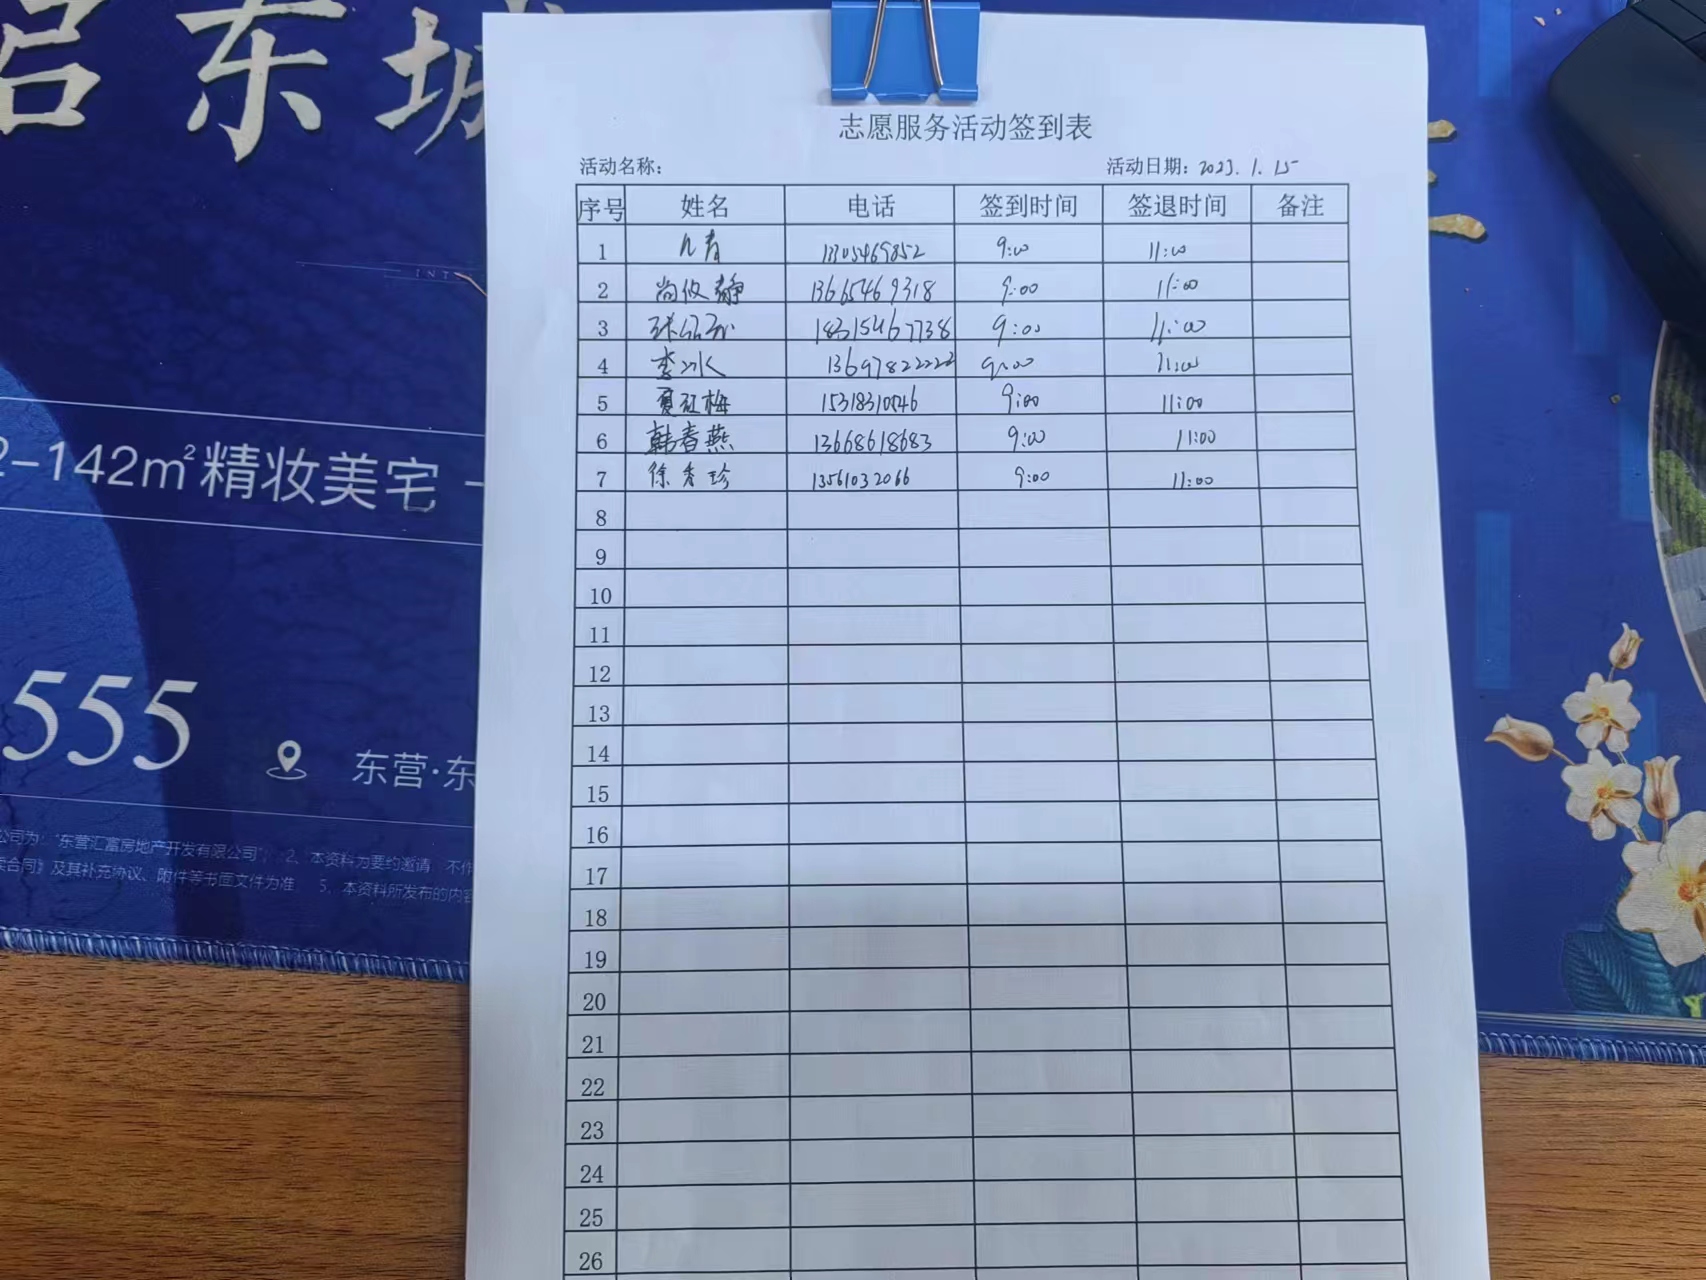 启东城
2-142m²精妆美宅
555
东营·东
公司为："东营汇富房地产开发有限公司"； 2、本资料为要约邀请 不作
卖合同》及其补充协议、附件等书面文件为准 5、本资料所发布的内容
INT
志愿服务活动签到表
活动名称： 活动日期：2023.1.15
序号 姓名 电话 签到时间 签退时间 备注
1 9:00 11:00
2 尚俊静 13665469318 9:00 11:00
3 18315467738 9:00 11:00
4 李冰 13697822222 9:00 11:00
5 夏红梅 15318310546 9:00 11:00
6 韩春燕 13668618683 9:00 11:00
7 徐秀珍 13561032066 9:00 11:00
8
9
10
11
12
13
14
15
16
17
18
19
20
21
22
23
24
25
26